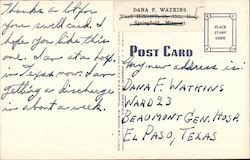 Thanks a lot for
your swell card. I
hope you like this
one. I am at a hosp.
in Texas now. I am
getting a discharge
in about a week.
DANA F. WATKINS
Springfield, Missouri
POST CARD
PLACE
STAMP
HERE
My new address is:
DANA F. WATKINS
WARD 23
BEAUMONT GEN. HOSP.
EL PASO, TEXAS